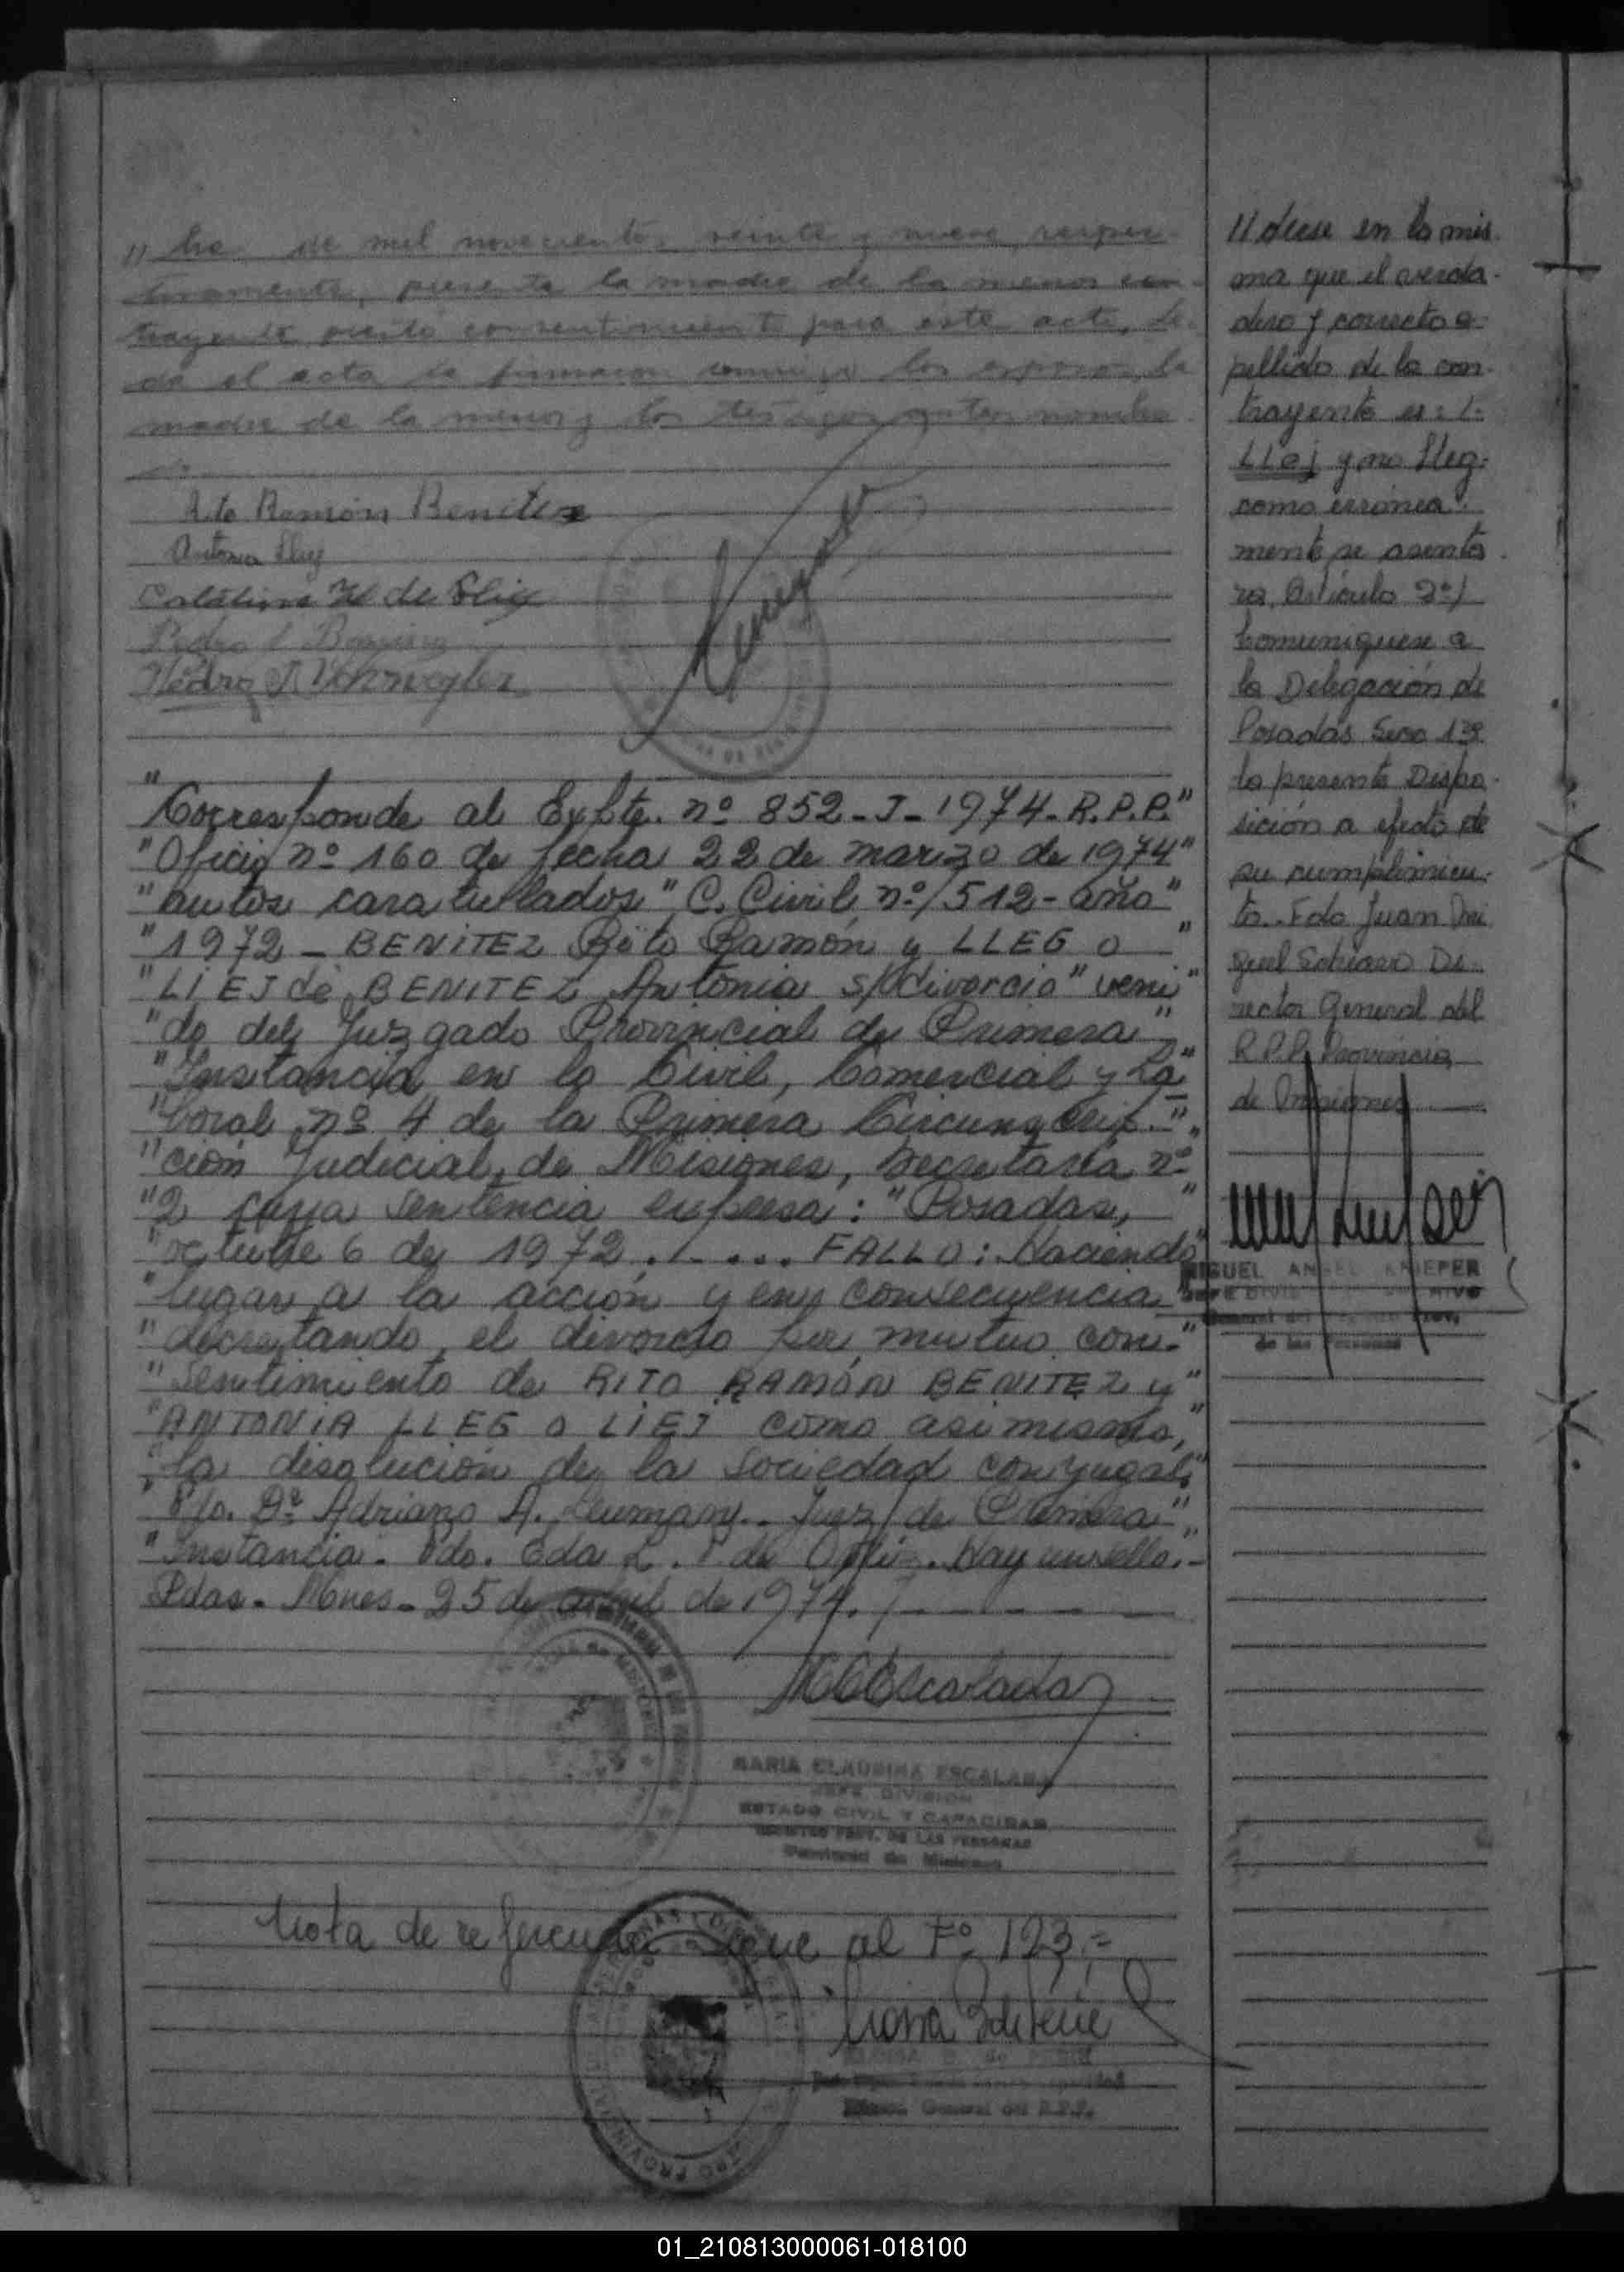 " he de mil novecientos veinte y nueve, respec-
tivamente, presente la madre de la menor con-
trayente presto consentimiento para este acto. Le-
da el acta la firmaron conmigo los esposos, la
madre de la menor y los testigos antes nombra
do.
Rito Ramón Benitez
Antonia Lleg
Catalina H de
Pedro
Pedro
"Corresponde al Expte. nº 852-J-1974-R.P.P."
"Oficio nº 160 de fecha 22 de marzo de 1974"
"autos caratullados "C. Civil nº/512-año"
"1972 - BENITEZ Rito Ramón y LLEG o "
"LIEJ de BENITEZ Antonia s/divorcio" veni"
"do del Juzgado Provincial de Primera"
"Instancia en lo Civil, Comercial y La"
"boral nº 4 de la Primera Circunscrip-"
"ción Judicial de Misiones, Secretaría nº"
"2 cuya sentencia expresa: "Posadas, "
"octubre 6 de 1972 . - .... FALLO: Haciendo"
"lugar a la acción y en consecuencia"
"decretando el divorcio por mutuo con-"
"sentimiento de RITO RAMÓN BENITEZ y"
"ANTONIA LLEG o LIEJ como asimismo,"
"la disolución de la sociedad conyugal."
"Fdo. Dr. Adriano A. Juez de Primera"
"Instancia. Fdo. Eda L. de Hay un sello.-
Pdas. Mnes. 25 de abril de 1974./
MCEscalada
MARIA CLAUDINA ESCALADA
JEFE DIVISION
ESTADO CIVIL Y CAPACIDAD
REGISTRO PROV. DE LAS PERSONAS
Provincia de Misiones
Nota de referencia sigue al Fº 123.=
General del R.P.P.
//dese en la mis-
ma que el verda-
dero y correcto a-
pellido de la con-
trayente es:
LLej y no lleg
como erronea-
mente se asenta-
ra, Artículo 2º)
Comuníquese a
la Delegación de
Posadas Secc 1ra
la presente Dispo-
sición a efecto de
su cumplimien-
to. Fdo Juan Mi
guel Di-
rector General del
R.P.P. Provincia
de Misiones
MIGUEL ANGEL KNIEPER
JEFE DIVIS
General del Registro Prov.
de las Personas
01_210813000061-018100